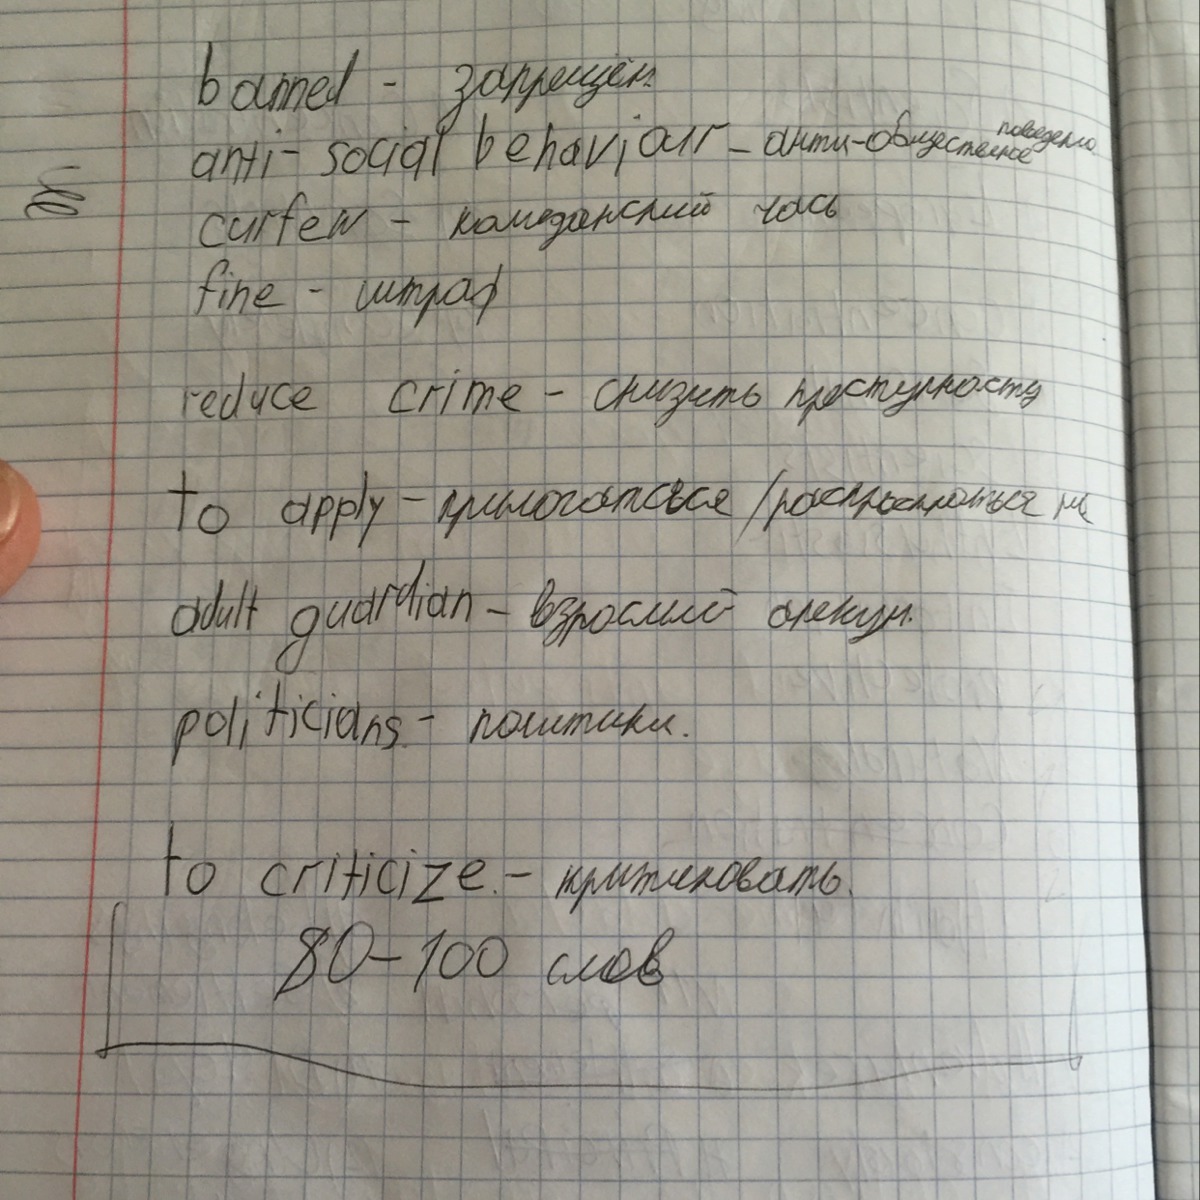 banned - запрещён.
anti-social behaviour - анти-общественное поведение
curfew - комеданский часъ
fine - штраф
reduce crime - снизить преступность
to apply - прилогаться / распространяться на
adult guardian - взрослый опекун.
politicians. - политики.
to criticize. - критиковать.
80-100 слов